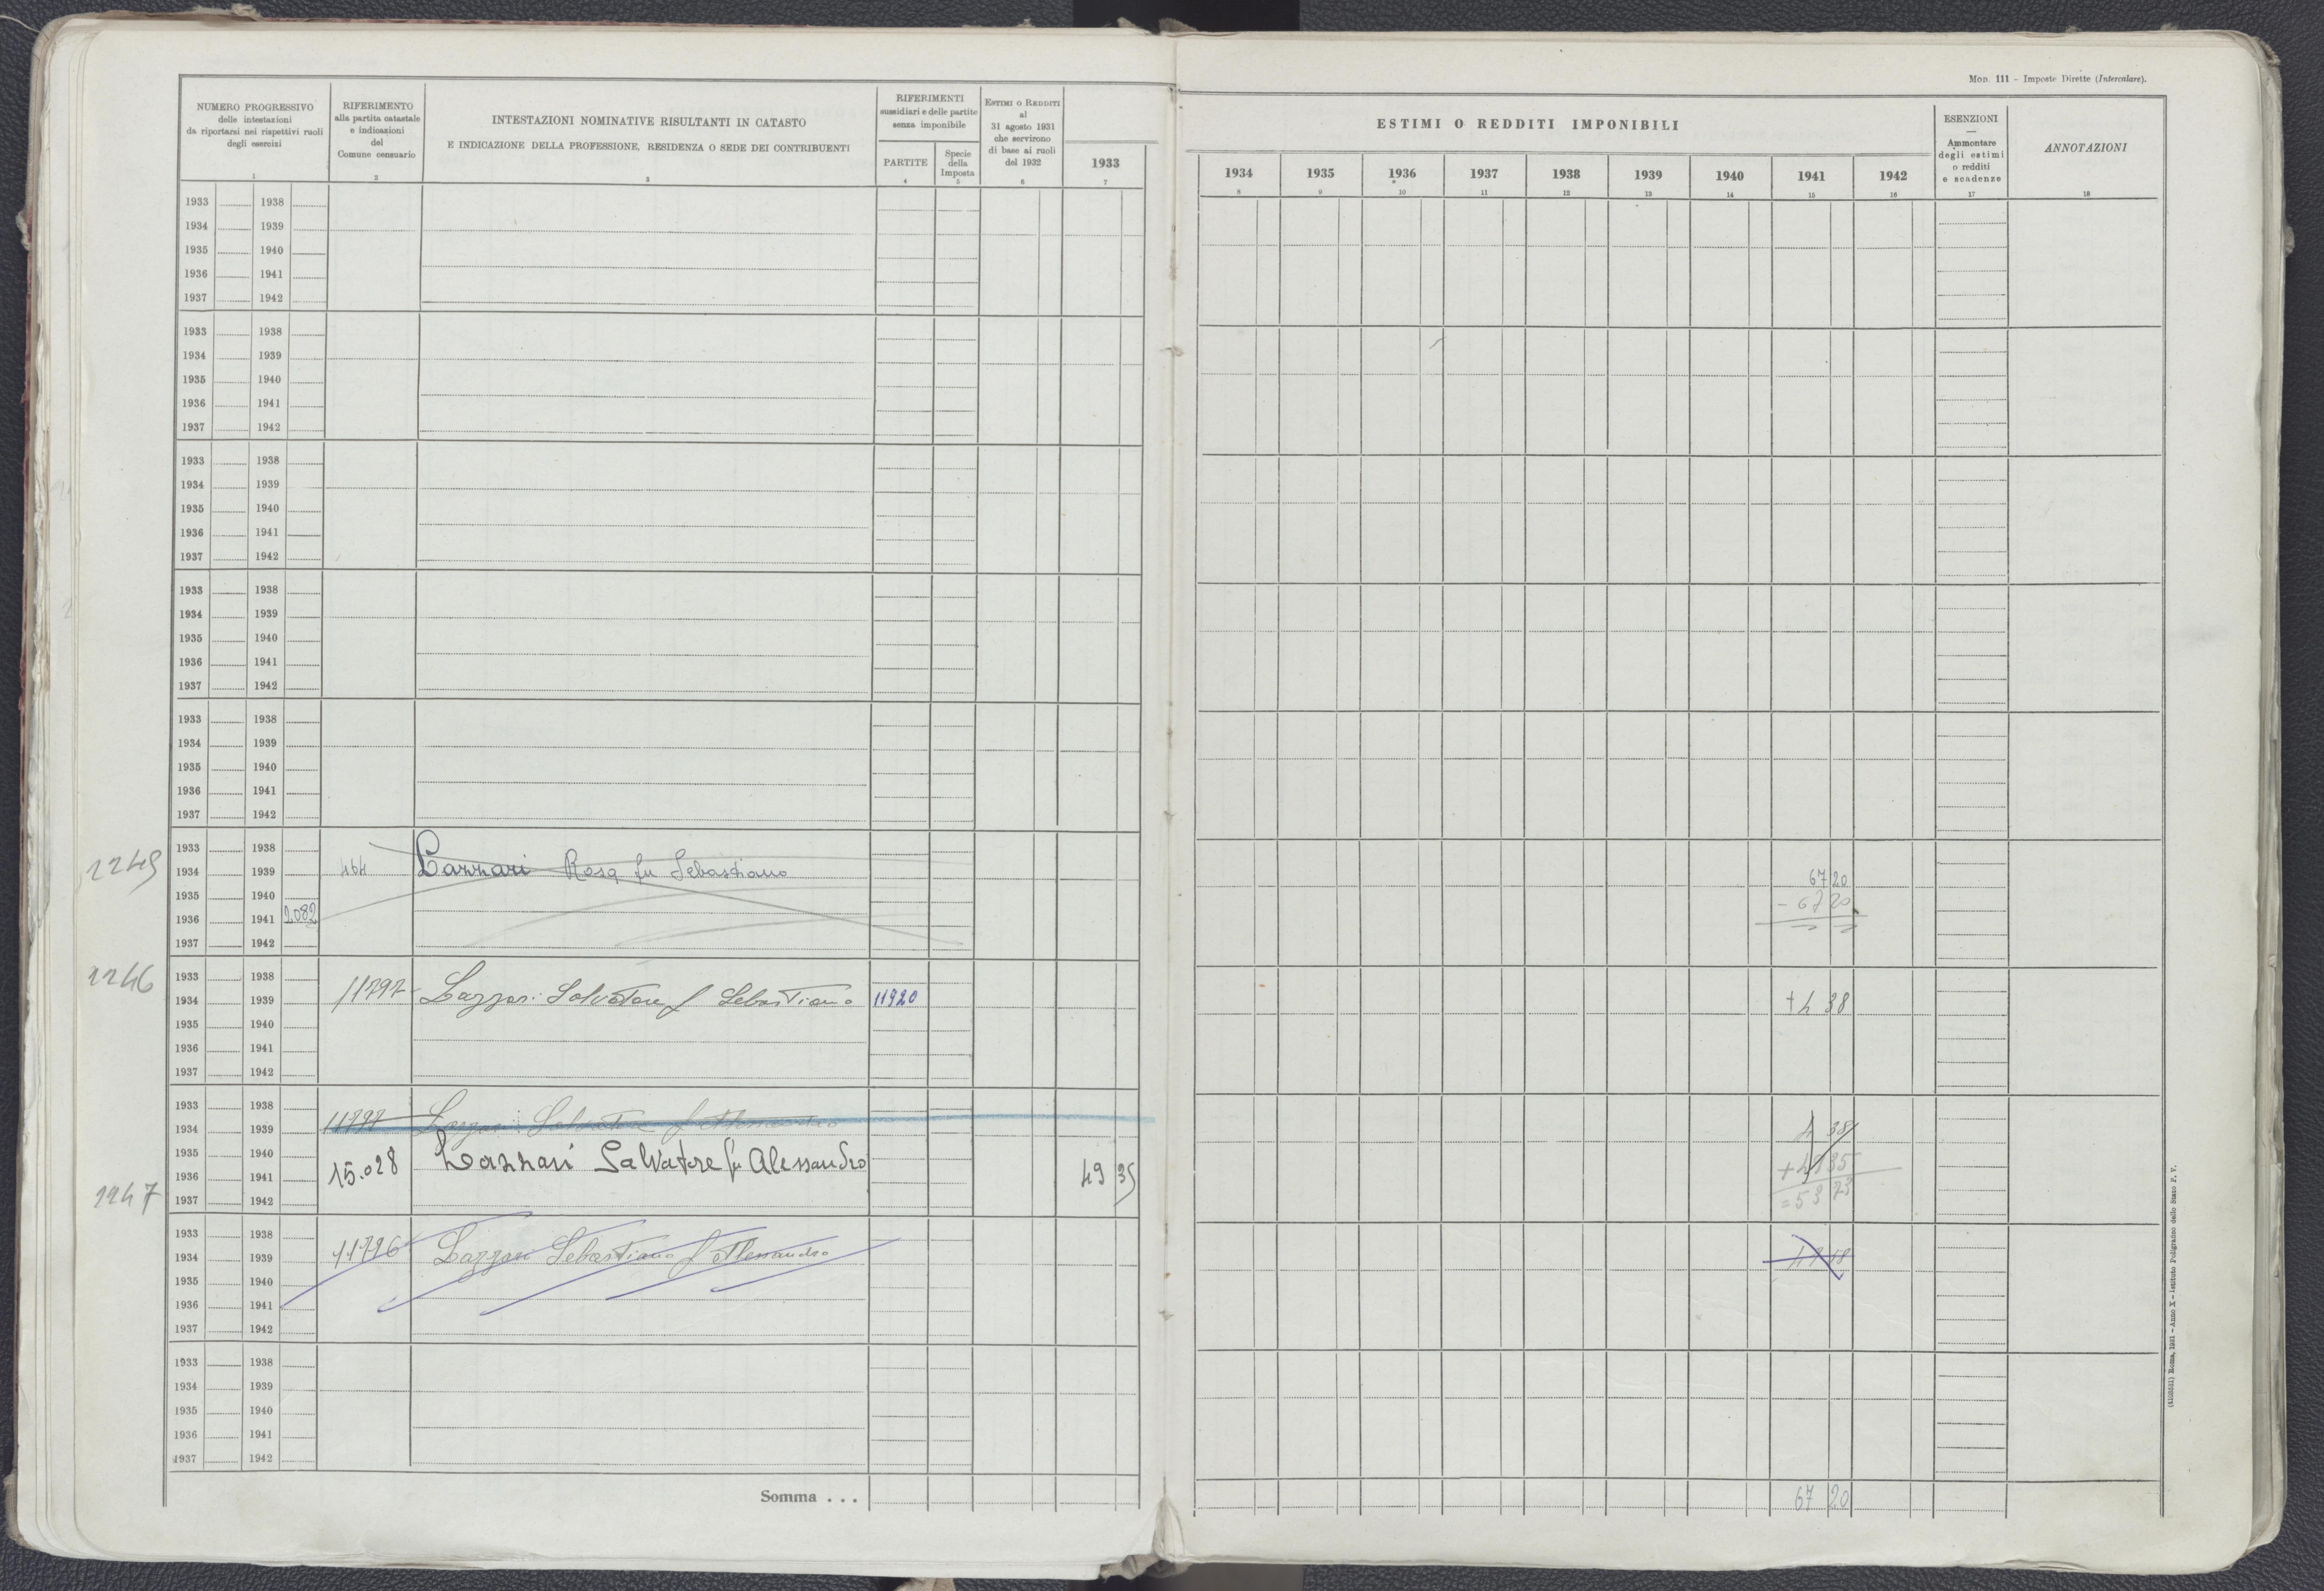 Mod. 111 - Imposte Dirette (Intercalare).
NUMERO PROGRESSIVO
delle intestazioni
da riportarsi nei rispettivi ruoli
degli esercizi
1
RIFERIMENTO
alla partita catastale
e indicazioni
del
Comune censuario
2
INTESTAZIONI NOMINATIVE RISULTANTI IN CATASTO
E INDICAZIONE DELLA PROFESSIONE, RESIDENZA O SEDE DEI CONTRIBUENTI
3
RIFERIMENTI
sussidiari e delle partite
senza imponibile
PARTITE
4
Specie
della
Imposta
5
Estimi o Redditi
al
31 agosto 1931
che servirono
di base ai ruoli
del 1932
6
1933
7
ESTIMI O REDDITI IMPONIBILI
1934 1935 1936 1937 1938 1939 1940 1941 1942
8 9 10 11 12 13 14 15 16
ESENZIONI
—
Ammontare
degli estimi
o redditi
e scadenze
17
ANNOTAZIONI
18
1933 1938
1934 1939
1935 1940
1936 1941
1937 1942
1933 1938
1934 1939
1935 1940
1936 1941
1937 1942
1933 1938
1934 1939
1935 1940
1936 1941
1937 1942
1933 1938
1934 1939
1935 1940
1936 1941
1937 1942
1933 1938
1934 1939
1935 1940
1936 1941
1937 1942
1933 1938
1245 1934 1939 464 Lazzari Rosa fu Sebastiano 67 20
1935 1940 - 67 20
1936 1941 2082
1937 1942
1246 1933 1938
1934 1939 11797 Lazzari Salvatore f Sebastiano 11920 + 4 38
1935 1940
1936 1941
1937 1942
1933 1938
1934 1939 11797 Lazzari Salvatore f Alessandro 4 38
1935 1940 15.028 Lazzari Salvatore fu Alessandro
1936 1941 49 35 + 49 35
1247 1937 1942 = 53 73
1933 1938
1934 1939 11796 Lazzari Sebastiano f Alessandro
1935 1940
1936 1941
1937 1942
1933 1938
1934 1939
1935 1940
1936 1941
1937 1942
Somma . . . 67 20
Roma, 1931 - Anno X - Istituto Poligrafico dello Stato P. V.